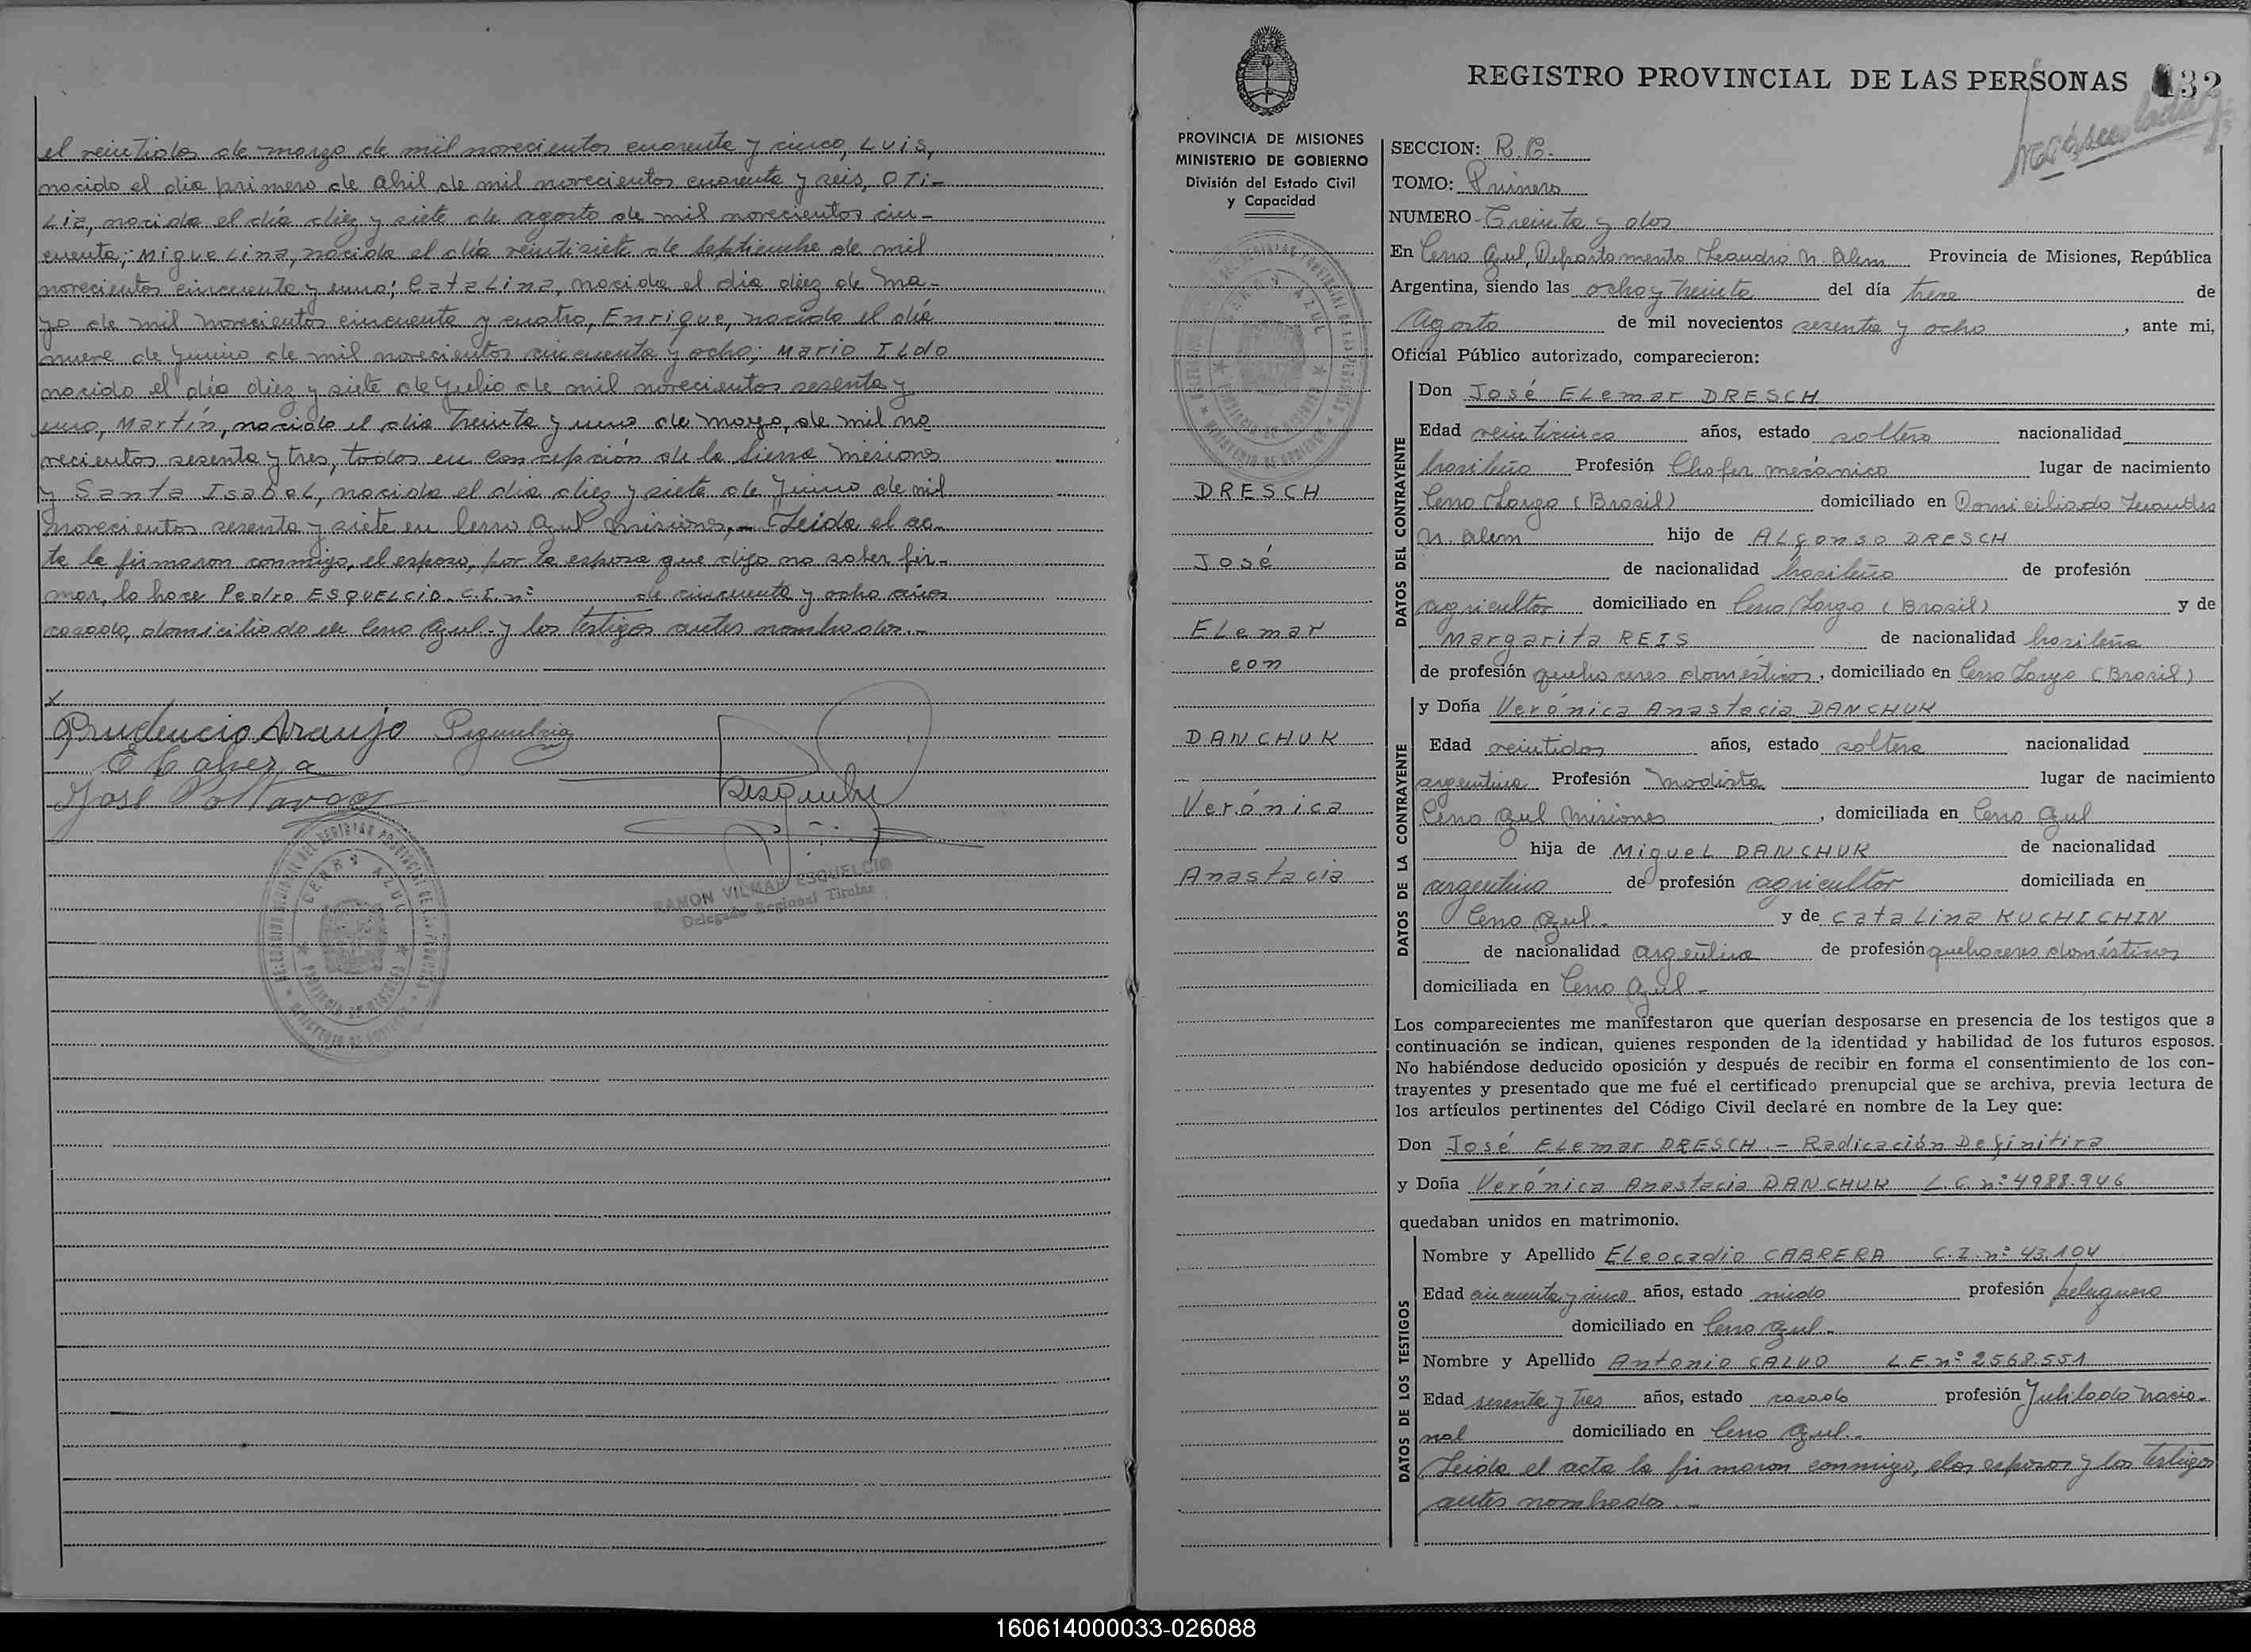 el veintidos de marzo de mil novecientos cuarenta y cinco, Luis,
nacido el día primero de Abril de mil novecientos cuarenta y seis, OTi-
Lia, nacida el día diez y siete de agosto de mil novecientos cin-
cuenta; MigueLina, nacida el día veintisiete de Septiembre de mil
novecientos cincuenta y uno; CataLina, nacida el día diez de Ma-
yo de mil novecientos cincuenta y cuatro, Enrique, nacido el día
nueve de Junio de mil novecientos cincuenta y ocho; Mario ILdo
nacido el día diez y siete de Julio de mil novecientos sesenta y
uno, Martín, nacido el día treinta y uno de marzo, de mil no
vecientos sesenta y tres, todos en Concepción de la Sierra Misiones
y Santa IsabeL, nacida el día diez y siete de Junio de mil
novecientos sesenta y siete en Cerro Azul Misiones.- Leida el ac-
ta la firmaron conmigo, el esposo, por la esposa que dijo no saber fir-
mar, lo hace Pedro ESQUELCIO. C.I.nº de cincuenta y ocho años
casado, domiciliado en Cerro Azul.- y los testigos antes nombrados.-
x
Prudencio Araujo
E Cabrera
José
RAMON VILMAR ESQUELCIO
Delegado Regional Titular
CERRO AZUL
PROVINCIA DE MISIONES
REGISTRO PROVINCIAL DE LAS PERSONAS 132
PROVINCIA DE MISIONES
MINISTERIO DE GOBIERNO
División del Estado Civil
y Capacidad
CERRO AZUL
DRESCH
José
ELemar
con
DANCHUK
Verónica
Anastacia
SECCION: R.C.-
TOMO: Primero
NUMERO - Treinta y dos
En Cerro Azul, Departamento Leandro N. Alem Provincia de Misiones, República
Argentina, siendo las ocho y treinta del día trece de
Agosto de mil novecientos sesenta y ocho, ante mi,
Oficial Público autorizado, comparecieron:
DATOS DEL CONTRAYENTE
Don José ELemar DRESCH
Edad veinticinco años, estado soltero nacionalidad
brasileño Profesión Chofer mecánico lugar de nacimiento
Cerro Largo (Brasil) domiciliado en Domiciliado Leandro
N. Alem hijo de ALfonso DRESCH
de nacionalidad brasileño de profesión
agricultor domiciliado en Cerro Largo (Brasil) y de
Margarita REIS de nacionalidad brasileña
de profesión quehaceres domésticos, domiciliado en Cerro Largo (Brasil)
DATOS DE LA CONTRAYENTE
y Doña Verónica Anastacia DANCHUK
Edad veintidos años, estado soltera nacionalidad
argentina Profesión Modista lugar de nacimiento
Cerro Azul Misiones, domiciliada en Cerro Azul
hija de MigueL DANCHUK de nacionalidad
argentino de profesión agricultor domiciliada en
Cerro Azul.- y de CataLina KUCHICHIN
de nacionalidad argentina de profesión quehaceres domésticos
domiciliada en Cerro Azul.-
Los comparecientes me manifestaron que querían desposarse en presencia de los testigos que a
continuación se indican, quienes responden de la identidad y habilidad de los futuros esposos.
No habiéndose deducido oposición y después de recibir en forma el consentimiento de los con-
trayentes y presentado que me fué el certificado prenupcial que se archiva, previa lectura de
los artículos pertinentes del Código Civil declaré en nombre de la Ley que:
Don José ELemar DRESCH.- Radicación Definitiva
y Doña Verónica Anastacia DANCHUK L.C.nº 4988.946
quedaban unidos en matrimonio.
DATOS DE LOS TESTIGOS
Nombre y Apellido ELeocadio CABRERA C.I.nº 43.104
Edad cincuenta y cinco años, estado viudo profesión peluquero
domiciliado en Cerro Azul.-
Nombre y Apellido Antonio CALVO L.E.nº 2568.551
Edad sesenta y tres años, estado casado profesión Jubilado nacio-
nal domiciliado en Cerro Azul.-
Leida el acta la firmaron conmigo, elos esposos y los testigos
antes nombrados.-
160614000033-026088